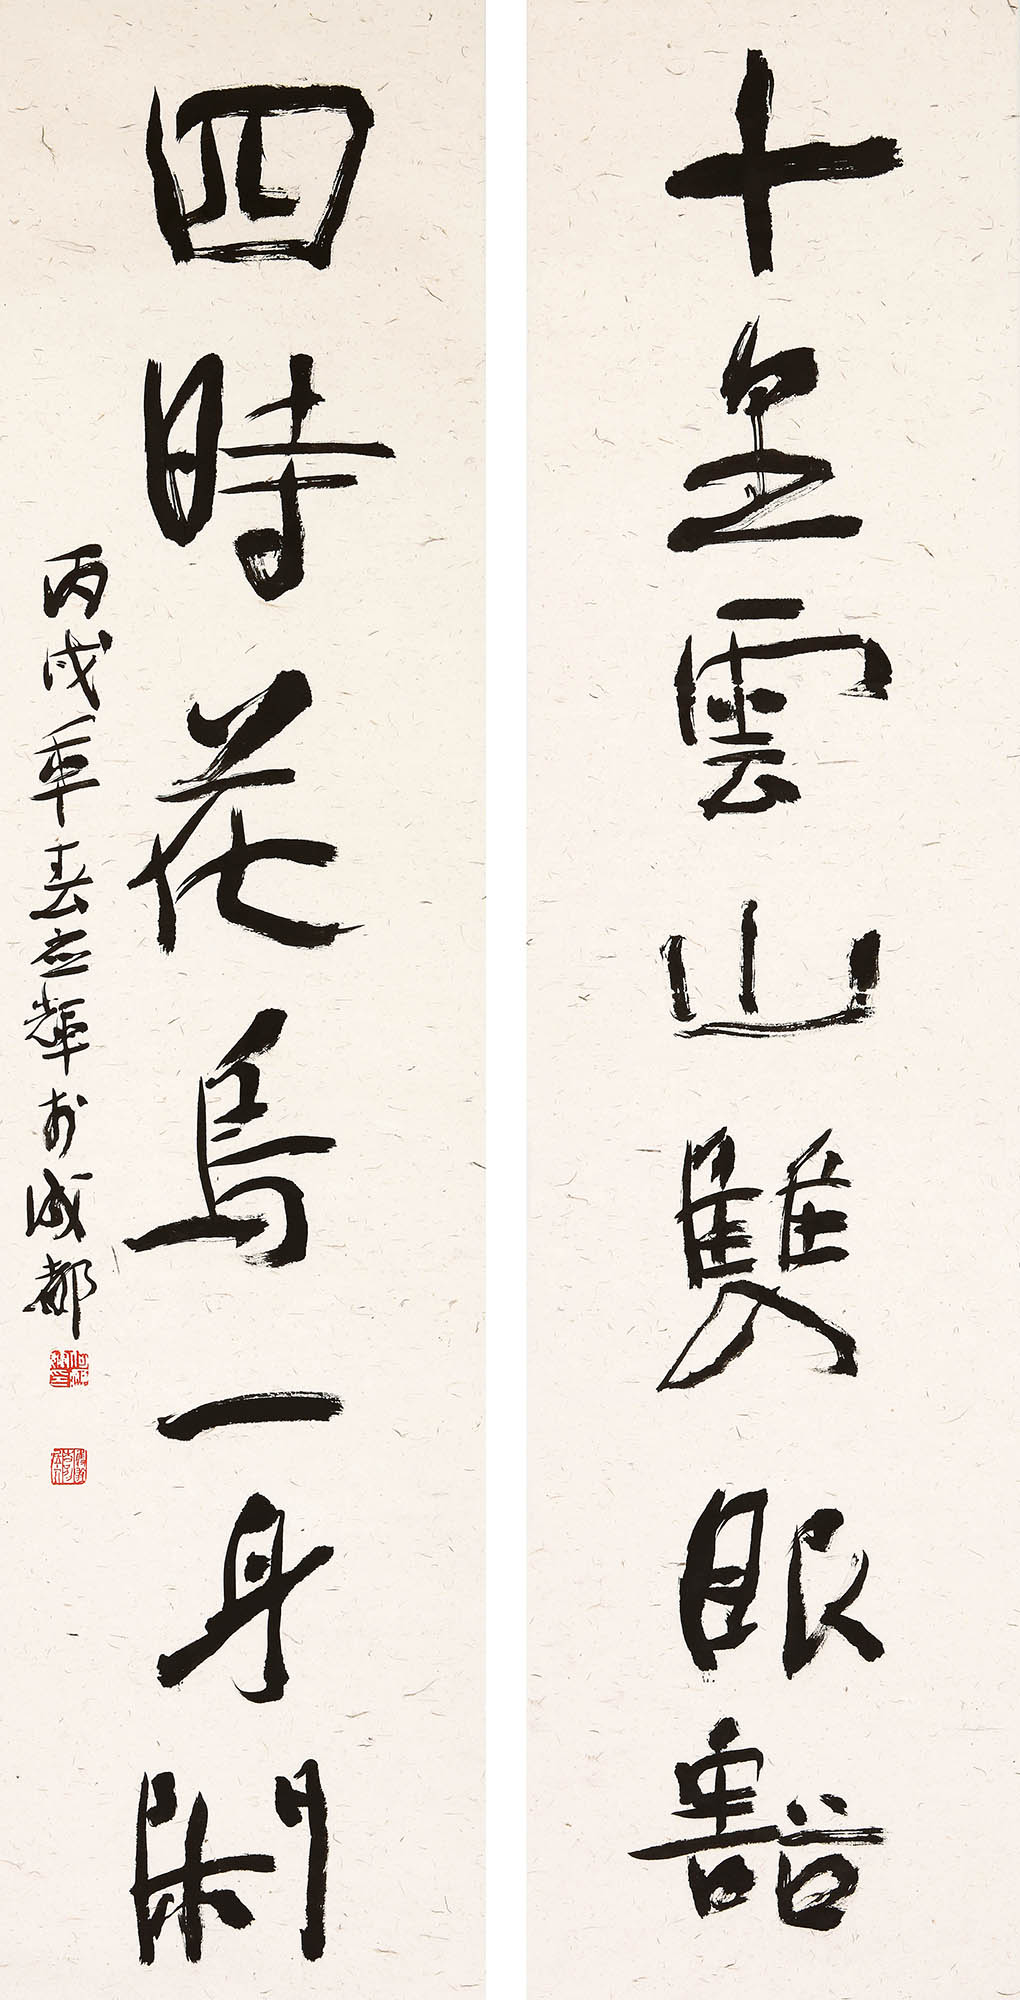 十里雲山雙眼豁
四時花鳥一身閑
丙戌年春應輝於成都